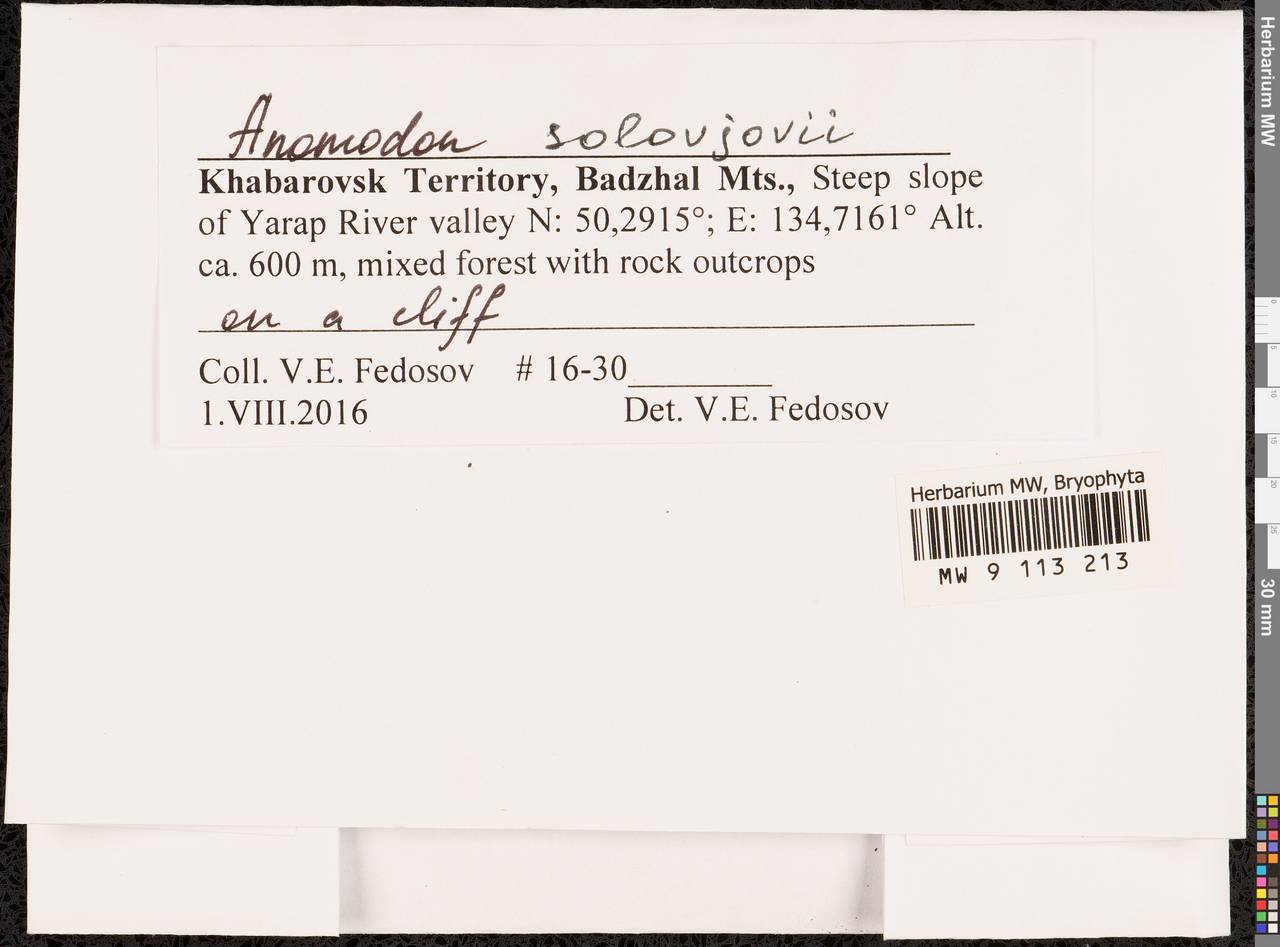 Anomodon solovjovii
Khabarovsk Territory, Badzhal Mts., Steep slope
of Yarap River valley N: 50,2915°; E: 134,7161° Alt.
ca. 600 m, mixed forest with rock outcrops
on a cliff
Coll. V.E. Fedosov # 16-30________
1.VIII.2016 Det. V.E. Fedosov
Herbarium MW, Bryophyta
MW 9 113 213
Herbarium MW
0
5
10
15
20
25
30 mm